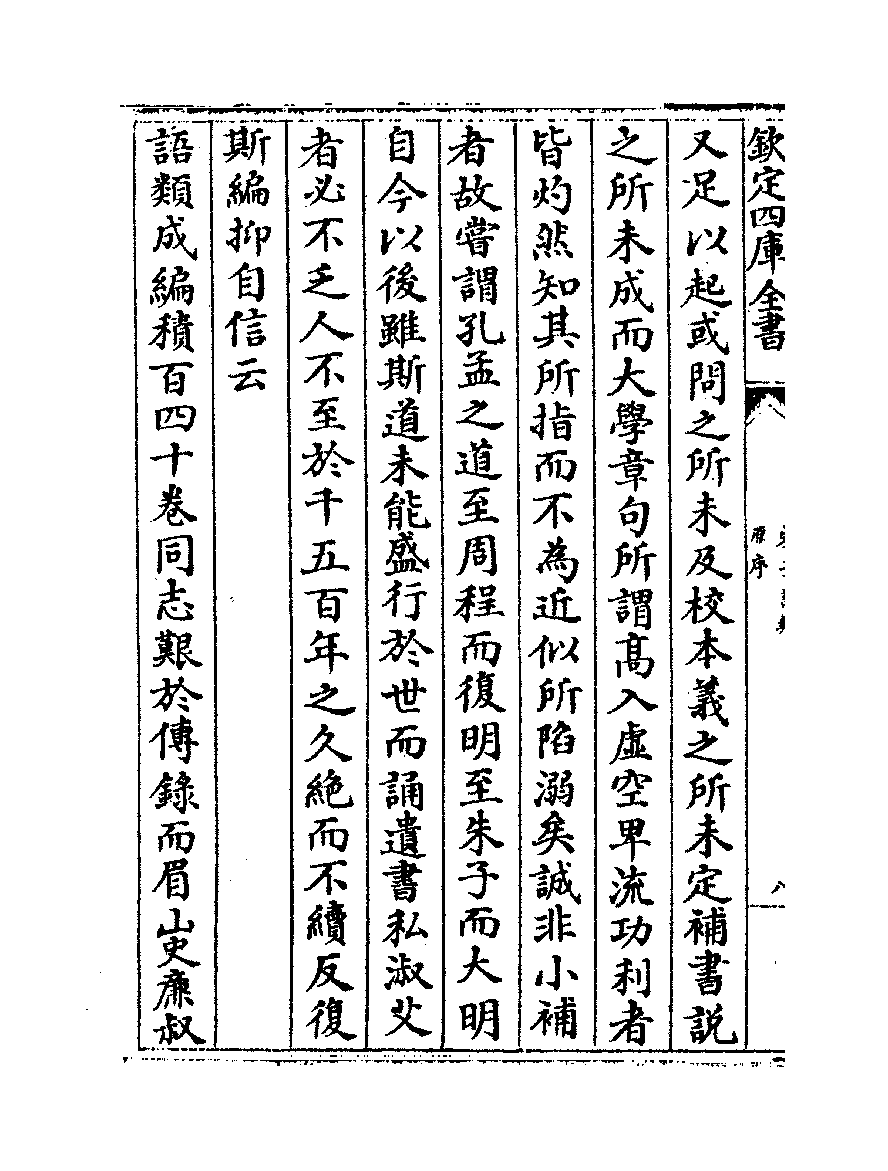 欽定四庫全書
原序
八
又足以起或問之所未及校本義之所未定補書説
之所未成而大學章句所謂髙入虛空卑流功利者
皆灼然知其所指而不為近似所陷溺矣誠非小補
者故嘗謂孔孟之道至周程而復明至朱子而大明
自今以後雖斯道未能盛行於世而誦遺書私淑艾
者必不乏人不至於千五百年之久絶而不續反復
斯編抑自信云
語類成編積百四十卷同志艱於傳錄而眉山史廉叔